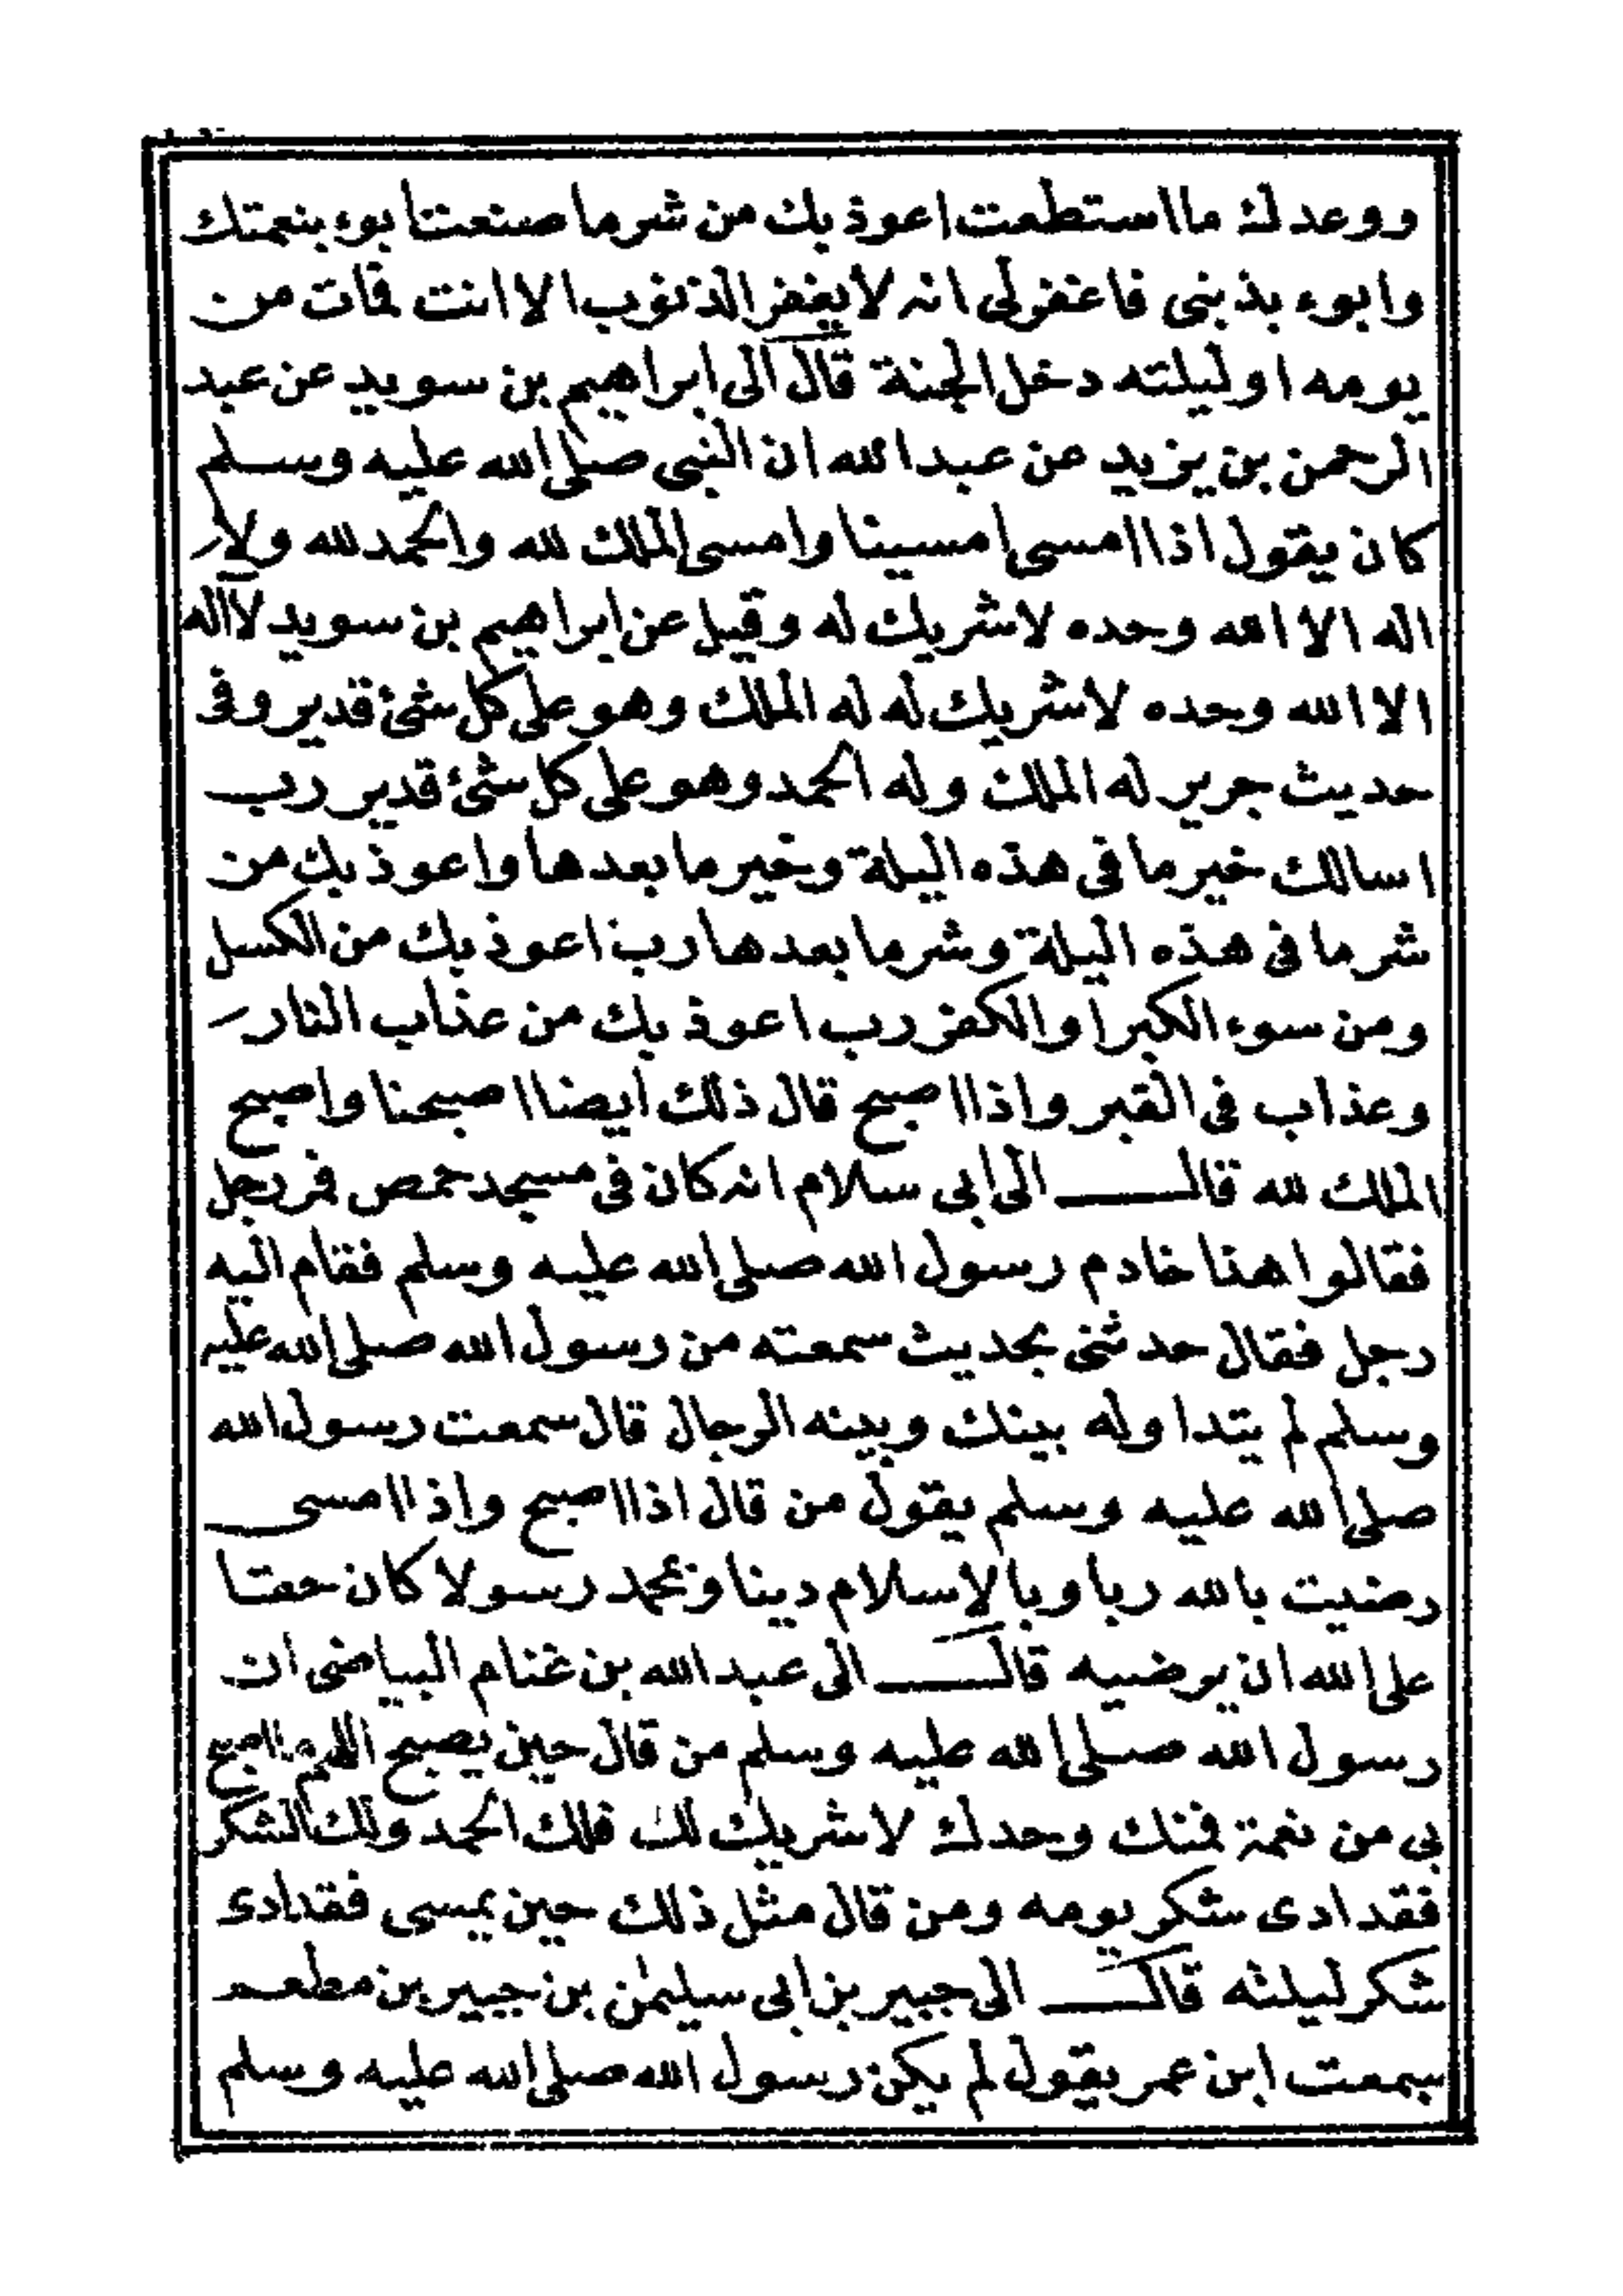 ووعدك ما استطعت اعوذ بك من شر ما صنعت ابوء بنعمتك
وابوء بذنبى فاغفرلى انه لا يغفر الذنوب الا انت فمات من
يومه او ليلته دخل الجنة قال الى ابراهيم بن سويد عن عبد
الرحمن بن يزيد عن عبد الله ان النبى صلى الله عليه وسلم
كان يقول اذا امسى امسينا وامسى الملك لله والحمد لله ولا
اله الا الله وحده لا شريك له وقيل عن ابراهيم بن سويد لا اله
الا الله وحده لا شريك له له الملك وهو على كل شئ قدير وفى
حديث جرير له الملك وله الحمد وهو على كل شئ قدير رب
اسالك خير ما فى هذه اليلة وخير ما بعدها واعوذ بك من
شر ما فى هذه اليلة وشر ما بعدها رب اعوذ بك من الكسل
ومن سوء الكبر او الكفر رب اعوذ بك من عذاب النار
وعذاب فى القبر واذا اصبح قال ذلك ايضا اصبحنا واصبح
الملك لله قال الى ابى سلام انه كان فى مسجد حمص فمر رجل
فقالوا هذا خادم رسول الله صلى الله عليه وسلم فقام اليه
رجل فقال حدثنى بحديث سمعته من رسول الله صلى الله عليه
وسلم لم يتداوله بينك وبينه الرجال قال سمعت رسول الله
صلى الله عليه وسلم يقول من قال اذا اصبح واذا امسى
رضيت بالله ربا وبالاسلام دينا وبمحمد رسولا كان حقا
على الله ان يرضيه قال الى عبد الله بن غنام البياضى ان
رسول الله صلى الله عليه وسلم من قال حين يصبح اللهم ما اصبح
بى من نعمة فمنك وحدك لا شريك لك فلك الحمد ولك الشكر
فقد ادى شكر يومه ومن قال مثل ذلك حين يمسى فقد ادى
شكر ليلته قال الى جبير بن ابى سليمٰن بن جبير بن مطعم
سمعت ابن عمر يقول لم يكن رسول الله صلى الله عليه وسلم